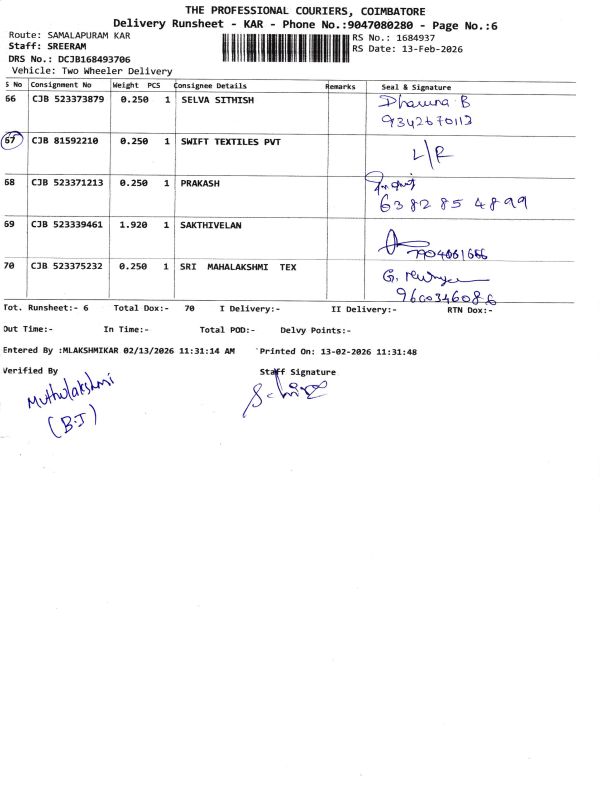 THE PROFESSIONAL COURIERS, COIMBATORE
Delivery Runsheet - KAR - Phone No.:9047080280 - Page No.:6
Route: SAMALAPURAM KAR
RS No.: 1684937
Staff: SREERAM
RS Date: 13-Feb-2026
DRS No.: DCJB168493706
Vehicle: Two Wheeler Delivery
S No Consignment No Weight PCS Consignee Details Remarks Seal & Signature
66 CJB 523373879 0.250 1 SELVA SITHISH
Dharuna B
9342670113
67 CJB 81592210 0.250 1 SWIFT TEXTILES PVT
L/R
68 CJB 523371213 0.250 1 PRAKASH
6382854899
69 CJB 523339461 1.920 1 SAKTHIVELAN
70 CJB 523375232 0.250 1 SRI MAHALAKSHMI TEX
9600346086
Tot. Runsheet:- 6 Total Dox:- 70 I Delivery:- II Delivery:- RTN Dox:-
Out Time:- In Time:- Total POD:- Delvy Points:-
Entered By :MLAKSHMIKAR 02/13/2026 11:31:14 AM Printed On: 13-02-2026 11:31:48
Verified By Staff Signature
Muthulakshmi
(B.J)